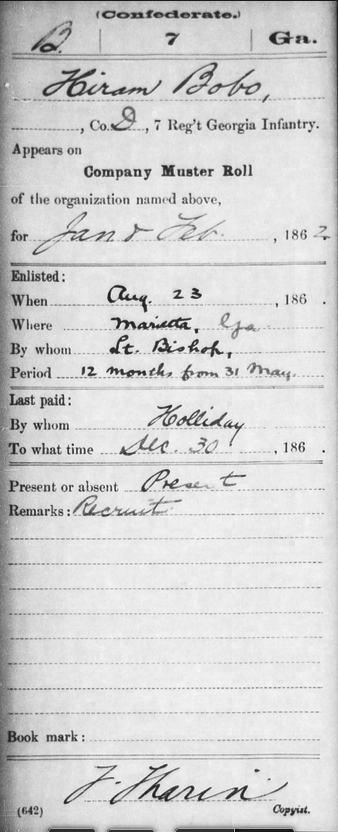 (Confederate.)
B. | 7 | Ga.
Hiram Bobo,
, Co. D, 7 Reg't Georgia Infantry.
Appears on
Company Muster Roll
of the organization named above,
for Jan & Feb. , 186 2.
Enlisted:
When Aug. 23 , 186 .
Where Marietta, Ga
By whom Lt. Bishop,
Period 12 months from 31 May.
Last paid:
By whom Holliday
To what time Dec. 30 , 186 .
Present or absent Present
Remarks: Recruit
Book mark:
F. Tharin
(642) Copyist.